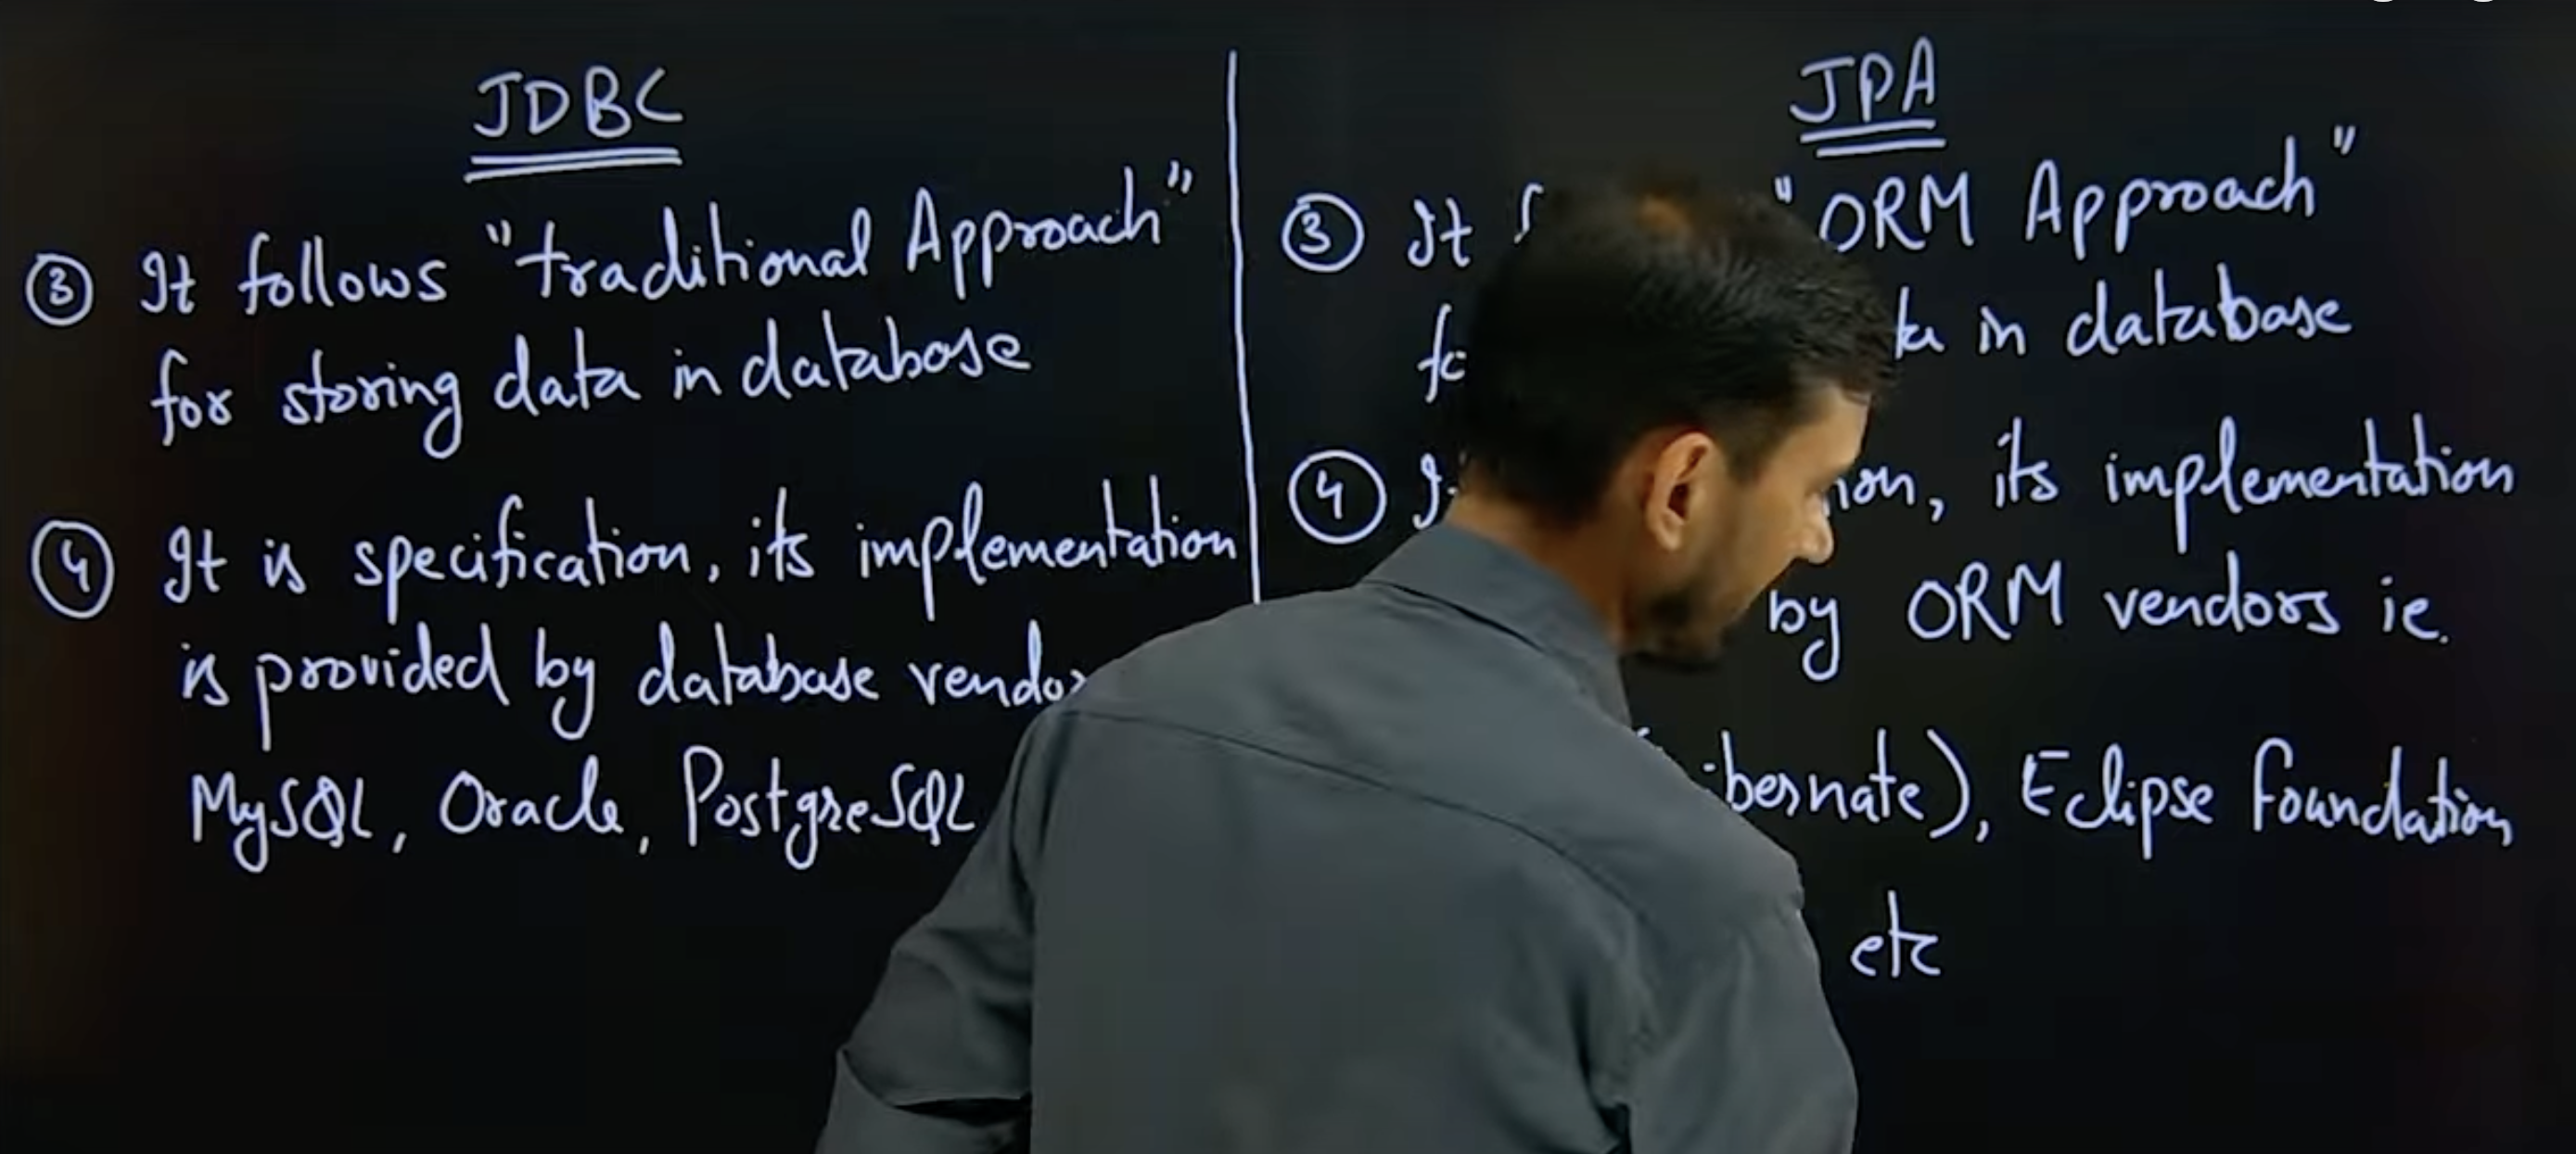 JDBC
③ It follows "traditional Approach"
for storing data in database
④ It is specification, its implementation
is provided by database
MySQL, Oracle, PostgreSQL
JPA
③ It "ORM Approach"
in database
④ its implementation
by ORM vendors ie.
Eclipse foundation
etc